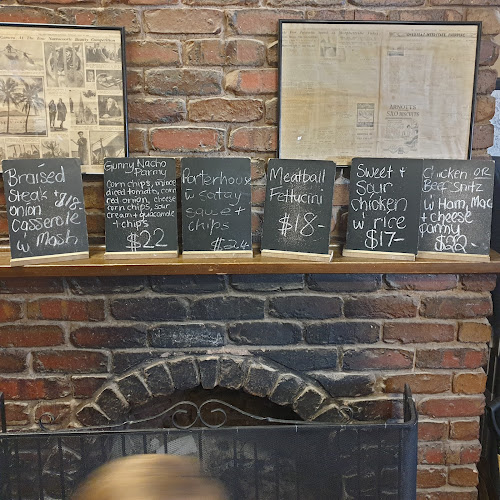 Braised
Steak + $18-
onion
Casserole
w Mash
Gunny Nacho
Parmy
Corn chips, mince
dried tomato, corn
red onion, cheese
corn chips, sour
cream + guacamole
+ chips
$22
Porterhouse
w Satay
sauce +
chips
$24
Meatball
Fettucini
$18-
Sweet +
Sour
chicken
w rice
$17-
Chicken OR
Beef Snitz
w Ham, Mac
+ cheese
parmy
$22-